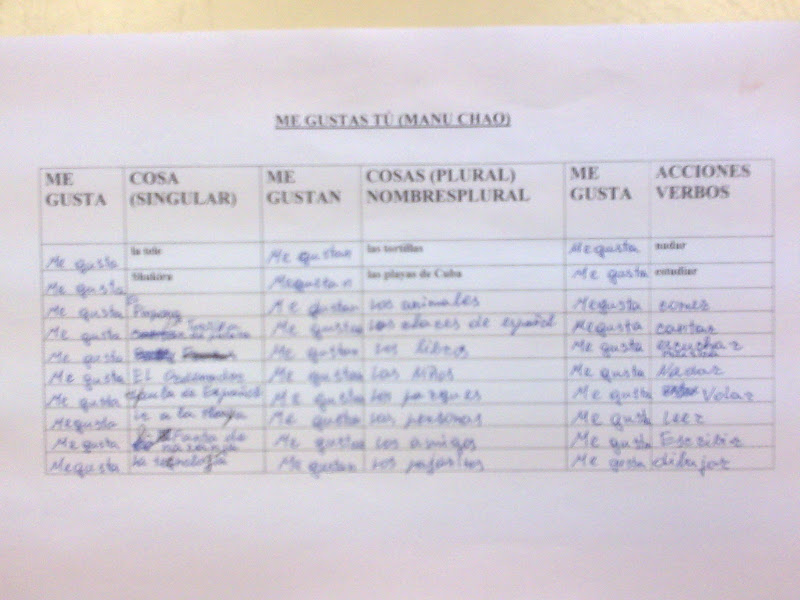 ME GUSTAS TÚ (MANU CHAO)
ME GUSTA COSA (SINGULAR) ME GUSTAN COSAS (PLURAL) NOMBRESPLURAL ME GUSTA ACCIONES VERBOS
Me gusta la tele Me gustan las tortillas Me gusta nadar
Me gusta Shakira Me gustan las playas de Cuba Me gusta estudiar
Me gusta Me gustan los animales Me gusta comer
Me gusta Tortilla de patata Me gustan las clases de español Me gusta cantar
Me gusta Me gustan los libros Me gusta escuchar música
Me gusta EL Ordenador Me gustan los niños Me gusta Nadar
Me gusta aula de Español Me gustan los parques Me gusta Volar
Me gusta ir a la Me gusta las personas Me gusta Leer
Me gusta de naranja Me gustan los amigos Me gusta Escribir
Me gusta la tecnología Me gustan los Me gusta dibujar